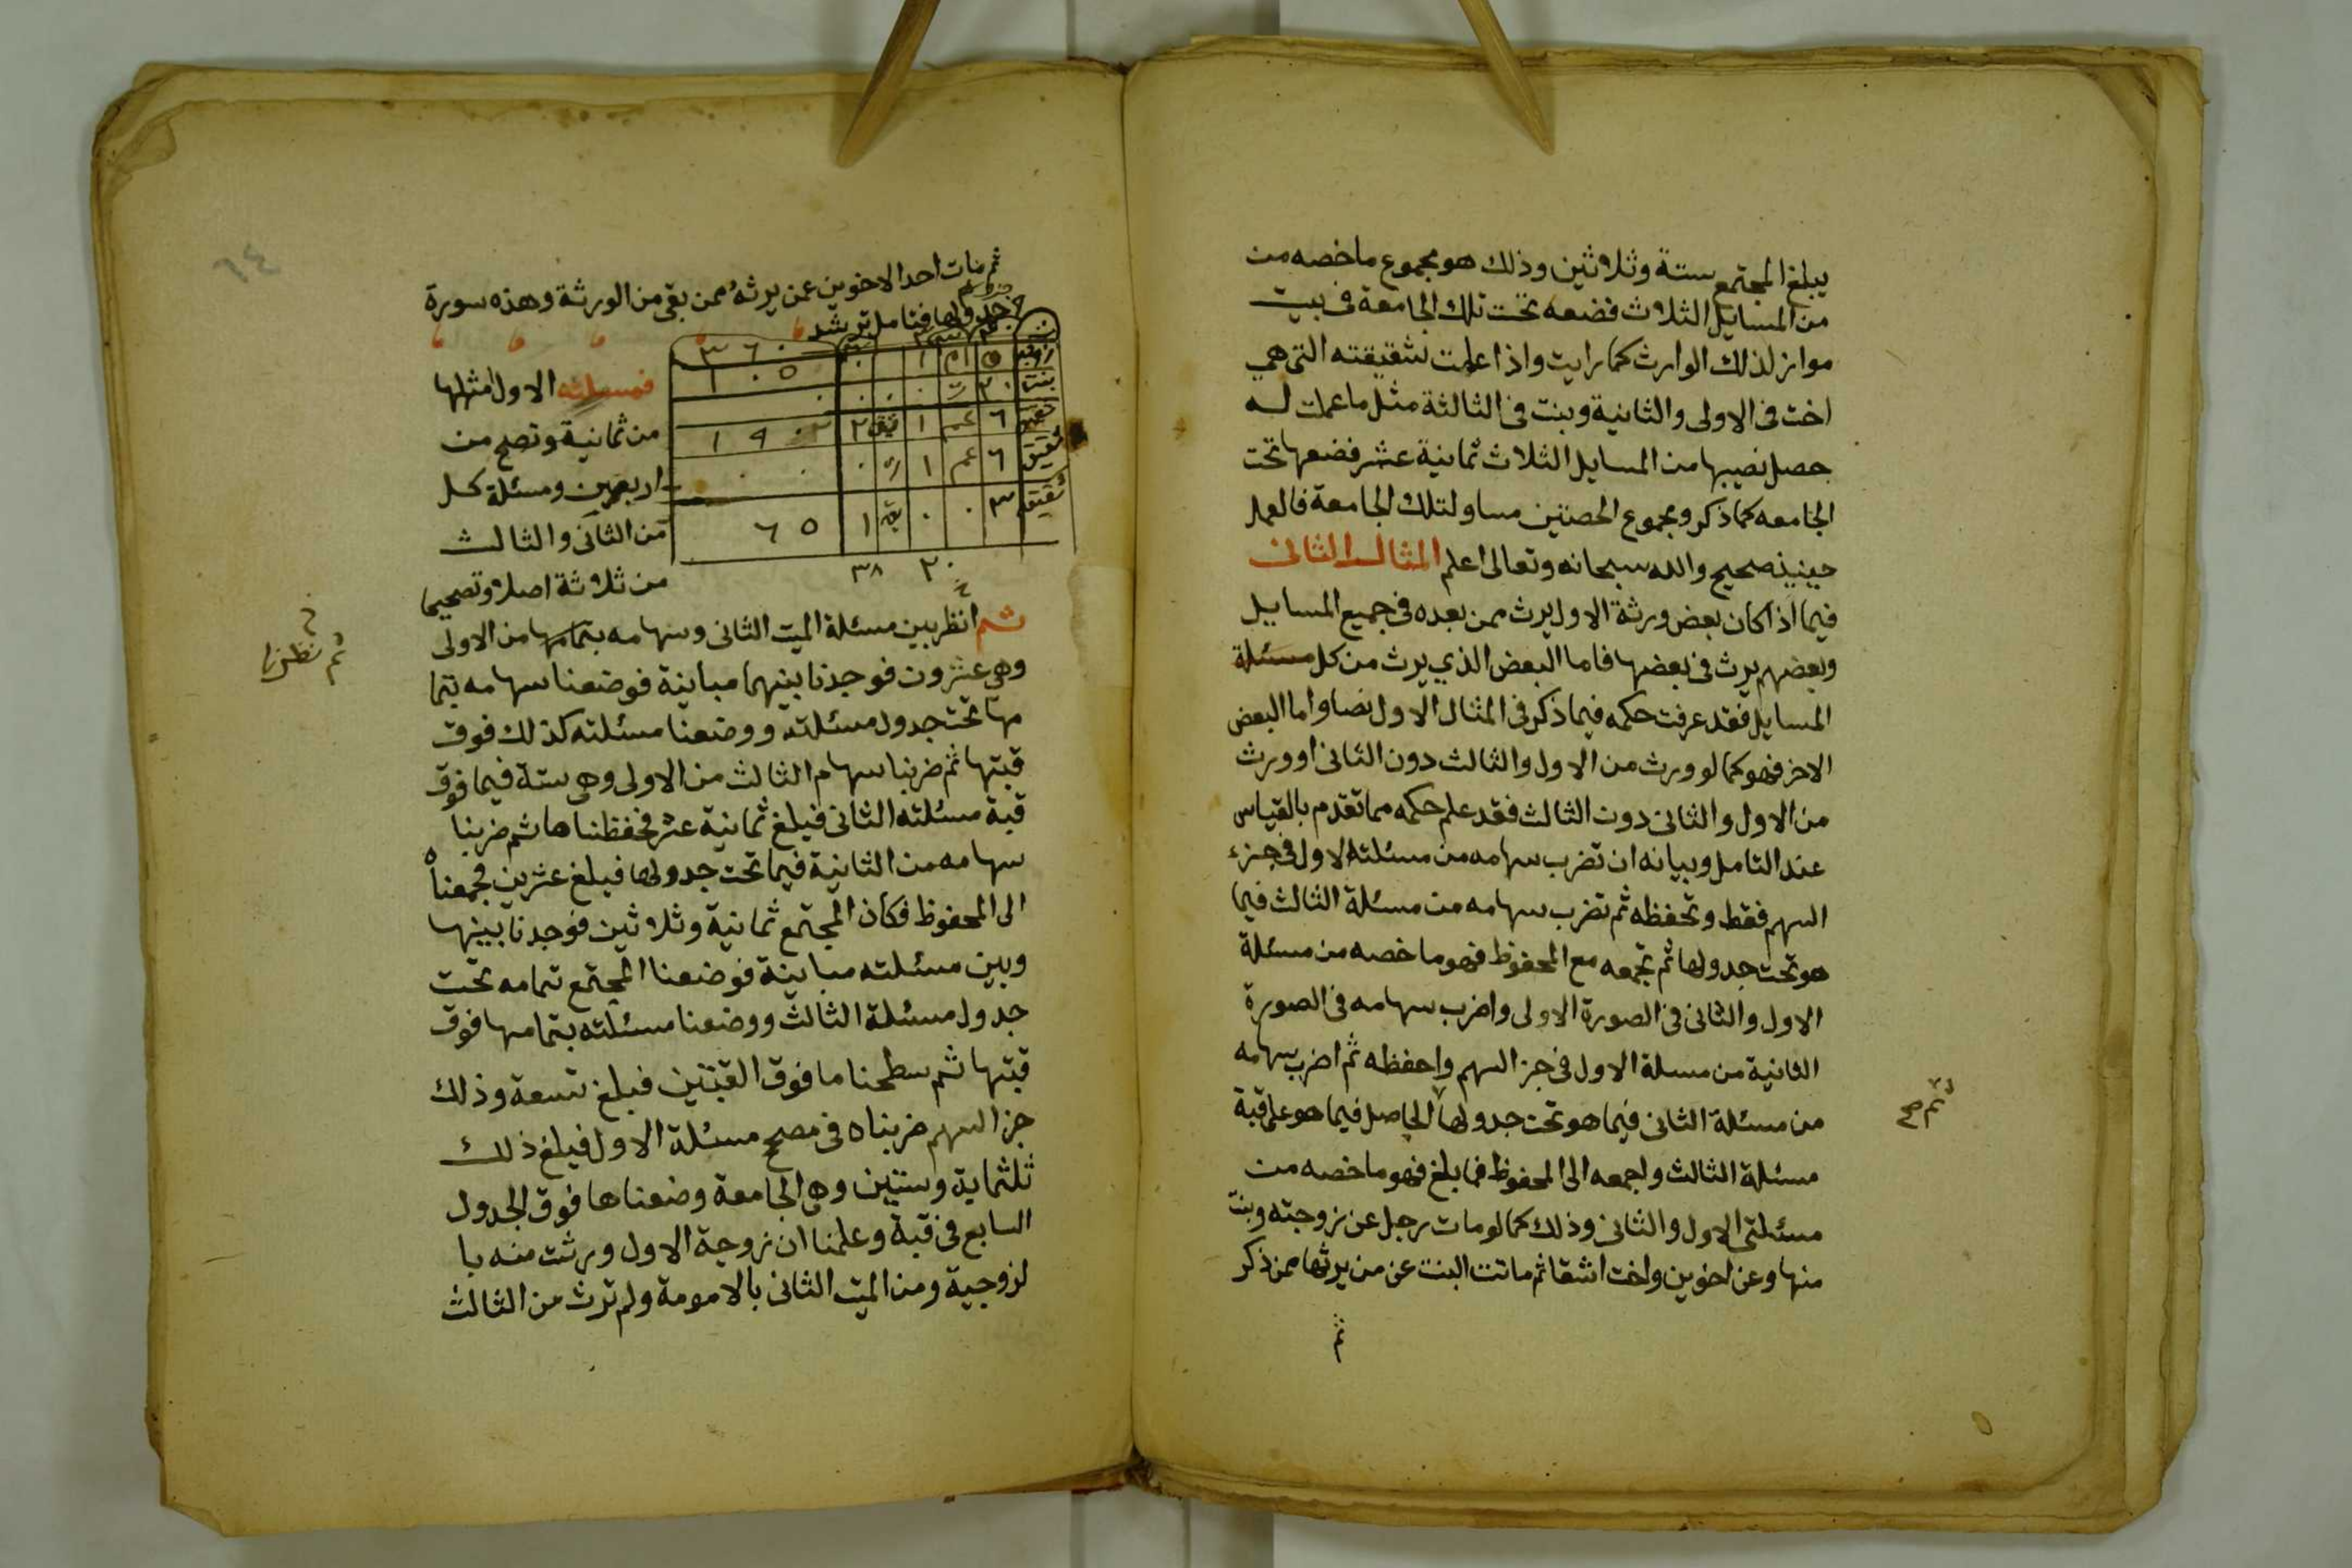 يبلغ المجتمع ستة وثلاثين وذلك هو مجموع ماخصه من
من المسايل الثلاث فضعه تحت تلك الجامعة في بيت
مواز لذلك الوارث كما رايت واذا علمت لشقيقته التي هي
اخت في الاولى والثانية وبنت في الثالثة مثل ما عملت له
حصل نصيبها من المسايل الثلاث ثمانية عشر فضعها تحت
الجامعه كما ذكر ومجموع الحصتين مساو لتلك الجامعة فالعمل
حينيذ صحيح والله سبحانه وتعالى اعلم المثال الثاني
فيما اذا كان بعض ورثة الاول يرث ممن بعده في جميع المسايل
وبعضهم يرث في بعضها فاما البعض الذي يرث من كل مسئلة
المسايل فقد عرفت حكمه فيما ذكر في المثال الاول نصا واما البعض
الاخر فهو كما لو ورث من الاول والثالث دون الثاني او ورث
من الاول والثاني دون الثالث فقد علم حكمه مما تقدم بالقياس
عند التامل وبيانه ان تضرب سهامه من مسئلته الاول في جزء
السهم فقط وتحفظه ثم تضرب سهامه من مسئلة الثالث فيما
هو تحت جدولها ثم تجمعه مع المحفوظ فهو ما خصه من مسئلة
الاول والثاني في الصورة الاولى واضرب سهامه في الصورة
الثانية من مسلة الاول في جز السهم واحفظه ثم اضرب سهامه
من مسئلة الثاني فيما هو تحت جدولها الحاصل فيما هو على قبة
ثم صح
مسئلة الثالث واجمعه الى المحفوظ فما بلغ فهو ما خصه من
مسئلتي الاول والثاني وذلك كما لو مات رجل عن زوجته وبنت
منها وعن اخوين واخت اشقا ثم ماتت البنت عن من يرثها ممن ذكر
ثم
٦٤
ثم مات احد الاخوين عمن يرثه ممن بقى من الورثة وهذه سورة
جدولها فتامل ترشد
٣٦٠
زوجة ٥ ام ١ ٠ ١٠٥
بنت ٢٠ ت ٠ ٠ ٠ ٠
شقيق ٦ عم ١ شق ٢ ١٩٠
شقيق ٦ عم ١ ت ٠ ٠ ٠
شقيقة ٣ ٠ ٠ قه ١ ٦٥
٢٠ ٣٨
فمسئلته الاول امثلها
من ثمانية وتصح من
اربعين ومسئلة كل
من الثاني والثالث
من ثلاثة اصلا وتصحيحا
ثم انظر بين مسئلة الميت الثاني وسهامه بتمامها من الاولى
ثم نظرنا
وهي عشرون فوجدنا بينهما مباينة فوضعنا سهامه بتما
مها تحت جدول مسئلته ووضعنا مسئلته كذلك فوق
قبتها ثم ضربنا سهام الثالث من الاولى وهي ستة فيما فوق
قبة مسئلته الثاني فبلغ ثمانية عشر فحفظناها ثم ضربنا
سهامه من الثانية فيما تحت جدولها فبلغ عشرين فجمعناه
الى المحفوظ فكان المجتمع ثمانية وثلاثين فوجدنا بينها
وبين مسئلته مباينة فوضعنا المجتمع تمامه تحت
جدول مسئلة الثالث ووضعنا مسئلته بتمامها فوق
قبتها ثم سطحنا ما فوق القبتين فبلغ تسعة وذلك
جز السهم ضربناه في مصح مسئلة الاول فبلغ ذلك
ثلثماية وستين وهي الجامعة وضعناها فوق الجدول
السابع في قبة وعلمنا ان زوجة الاول ورثت منه با
لزوجية ومن الميت الثاني بالامومة ولم ترث من الثالث